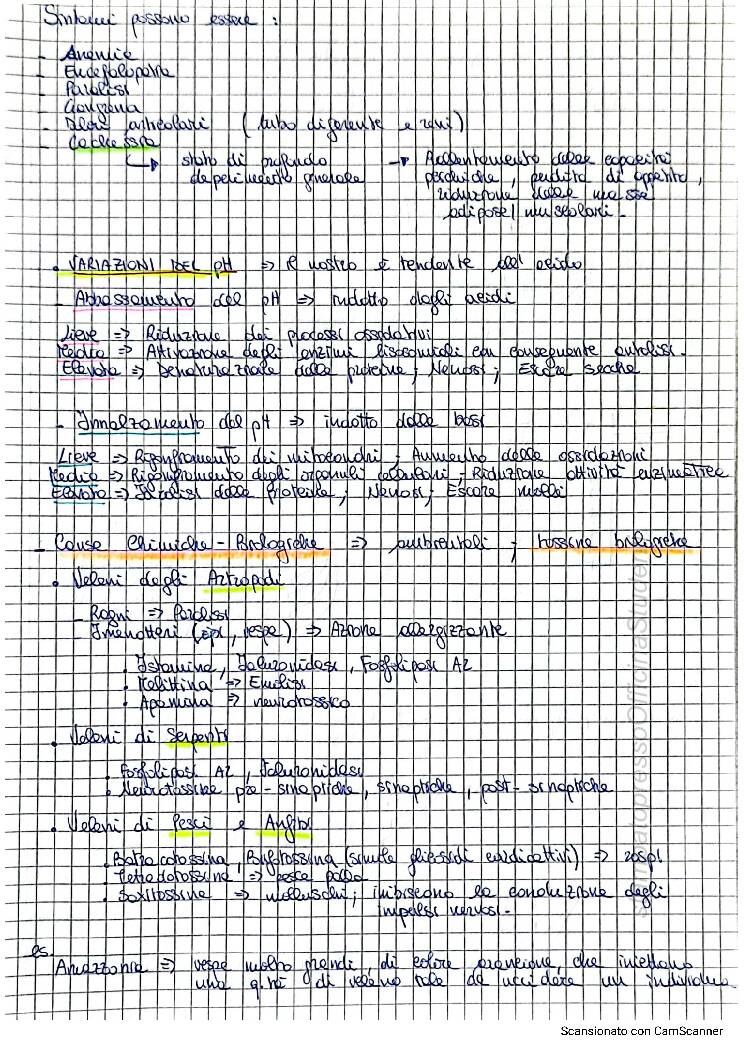 Sintomi possono essere :
- Anemie
- Encefalopatie
- Paralisi
- Gangrena
- Dolori articolari ( tubo digerente e reni)
- Cachessia
↳ stato di profondo deperimento generale → Rallentamento delle capacità psichiche, perdita di appetito, riduzione delle masse adipose/muscolari.
• VARIAZIONI DEL pH => Il nostro è tendente all'acido
- Abbassamento del pH => indotto dagli acidi
Lieve => Riduzione dei processi ossidativi
Medio => Attivazione degli enzimi lisosomiali con conseguente autolisi.
Elevato => Denaturazione delle proteine ; Necrosi ; Escare secche
- Innalzamento del pH => indotto dalle basi
Lieve => Rigonfiamento dei mitocondri ; Aumento delle ossidazioni
Medio => Rigonfiamento degli organuli cellulari ; Riduzione attività enzimatiche
Elevato => Idrolisi delle proteine ; Necrosi ; Escare molli
- Cause Chimiche - Biologiche => ambientali ; tossine biologiche
• Veleni degli Artropodi
- Ragni => Paralisi
- Imenotteri (api, vespe) => Azione allergizzante
• Istamina, Ialuronidasi, Fosfolipasi A2
• Melittina => Emolisi
• Apamina => neurotossico
• Veleni di Serpenti
• Fosfolipasi A2, Ialuronidasi
• Neurotossine pre-sinaptiche, sinaptiche, post-sinaptiche
• Veleni di Pesci e Anfibi
• Batracotossina, Bufotossina (simile glicosidi cardioattivi) => rospi
• Tetrodotossina => pesce palla
• Saxitossine => molluschi; inibiscono la conduzione degli
impulsi nervosi.
es.
Amazzonia => vespe molto grandi, di colore arancione, che iniettano
una q.tà di veleno tale da uccidere un individuo
stampatopressoOfficinaStudenti
Scansionato con CamScanner